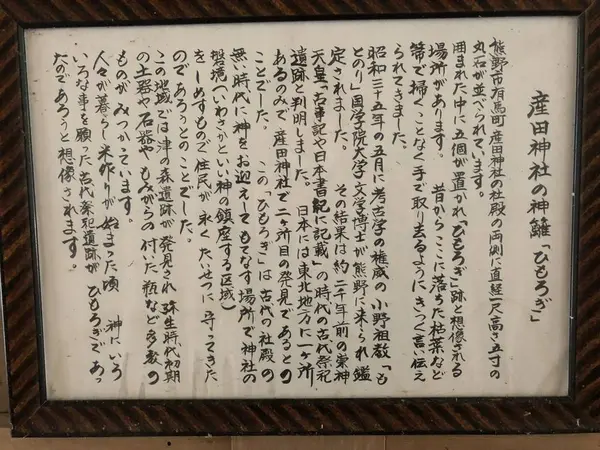 産田神社の神籬「ひもろぎ」
熊野市有馬町産田神社の社殿の両側に直経一尺高さ五寸の
丸石が並べられています。
囲まれた中に五個が置かれ「ひもろぎ」跡と想像される
場所があります。 昔からここに落ちた枯葉など
箒で掃くことなく手で取り去るようにきつく言い伝え
られてきました。
昭和三十五年の五月に考古学の権威の小野祖教「も
とのり」国学院大学文学博士が熊野に来られ鑑
定されました。 その結果は約二千年前の崇神
天皇「古事記や日本書紀に記載」の時代の古代祭祀
遺跡と判明しました。 日本には東北地方に一ケ所
あるのみで産田神社で二ケ所目の発見であるとの
ことでした。 この「ひもろぎ」は古代の社殿の
無い時代に神をお迎えてもてなす場所で神社の
磐境(いわさかといい神の鎮座する区域)
をしめすもので住民が永くたいせつに守ってきた
のであろうとのことでした。
この地域では津の森遺跡が発見され弥生時代初期
の土器や石器やもみがらの付いた瓶など多数の
ものがみつかっています。
人々が暮らし米作りが始まった頃 神にいろ
いろな事を願った古代祭祀遺跡がひもろぎであっ
たのであろうと想像されます。